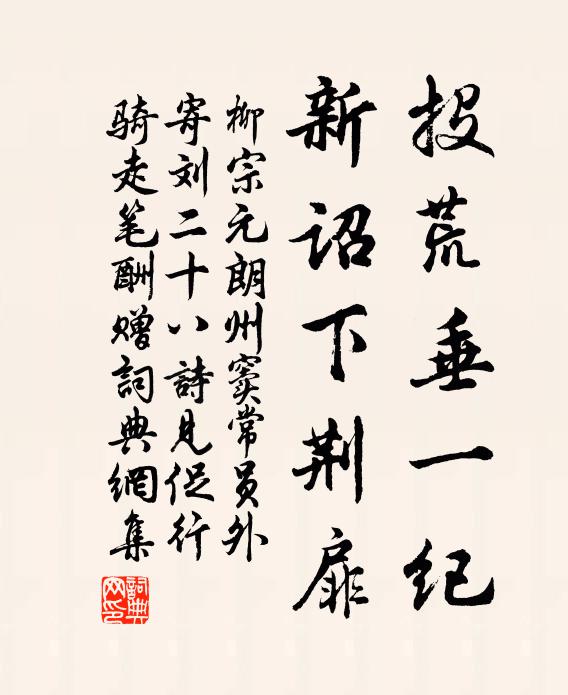 投荒垂一纪
新诏下荆扉
柳宗元朗州窦常员外
寄刘二十八詩見促行
骑走笔酬赠詞典網集
詞典网印